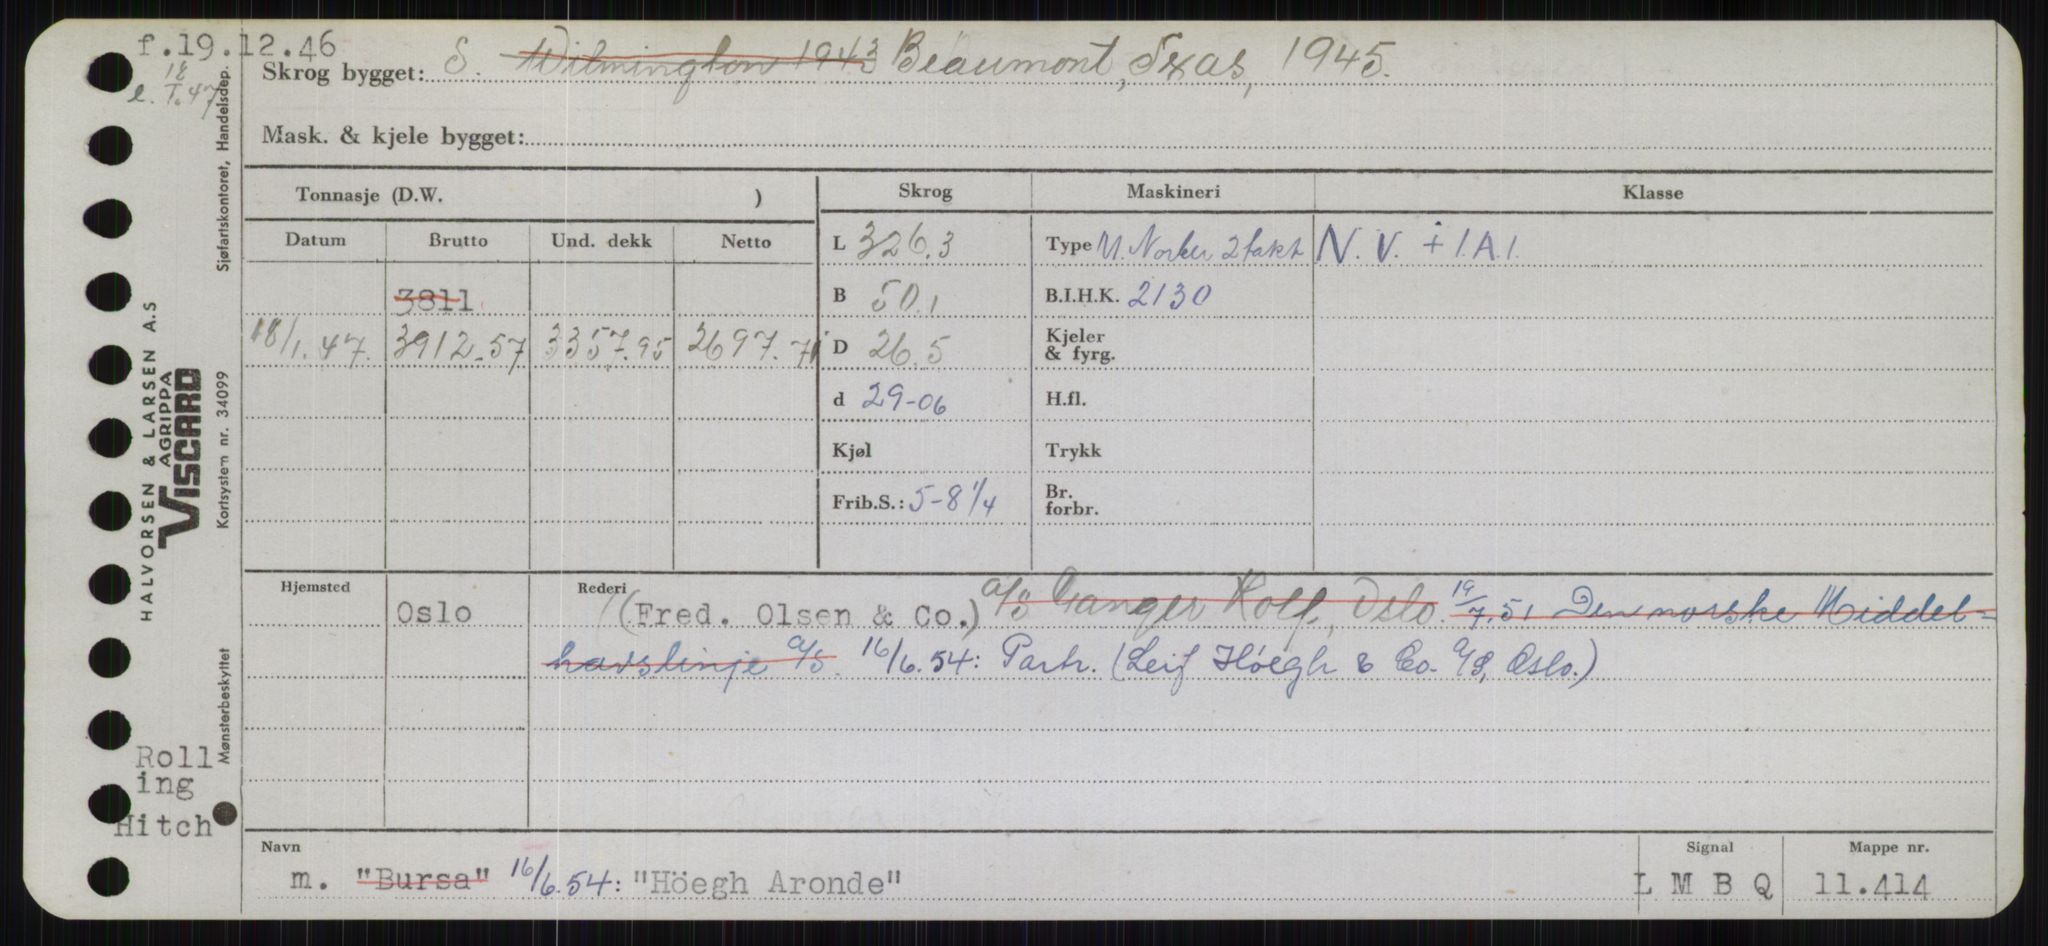 f.19.12.46
18
e. I.47
Skrog bygget: S. Wilmington 1943 Beaumont, Texas, 1945.
Mask. & kjele bygget:
Tonnasje (D.W. )
Skrog
Maskineri
Klasse
Datum Brutto Und. dekk Netto
L 326.3
Type M. Norber 2 takt
N.V. + 1.A.1.
3811
B 50.1
B.I.H.K. 2130
18/1.47. 3912.57 3357.95 2697.71
D 26.5
Kjeler & fyrg.
d 29-06
H.fl.
Kjøl
Trykk
Frib.S.: 5-8 1/4
Br. forbr.
Hjemsted
Oslo
Rederi
(Fred. Olsen & Co.) A/S Ganger Rolf, Oslo. 19/7.51 Den norske Middel=
havslinje A/S. 16/6.54: Partr. (Leif Höegh & Co. A/S, Oslo.)
Navn
m. "Bursa" 16/6.54: "Höegh Aronde"
Signal
L M B Q
Mappe nr.
11.414
Roll
ing
Hitch
HALVORSEN & LARSEN A.S
AGRIPPA
VISCARD
Sjøfartskontoret, Handelsdep.
Kortsystem nr. 34099
Mønsterbeskyttet